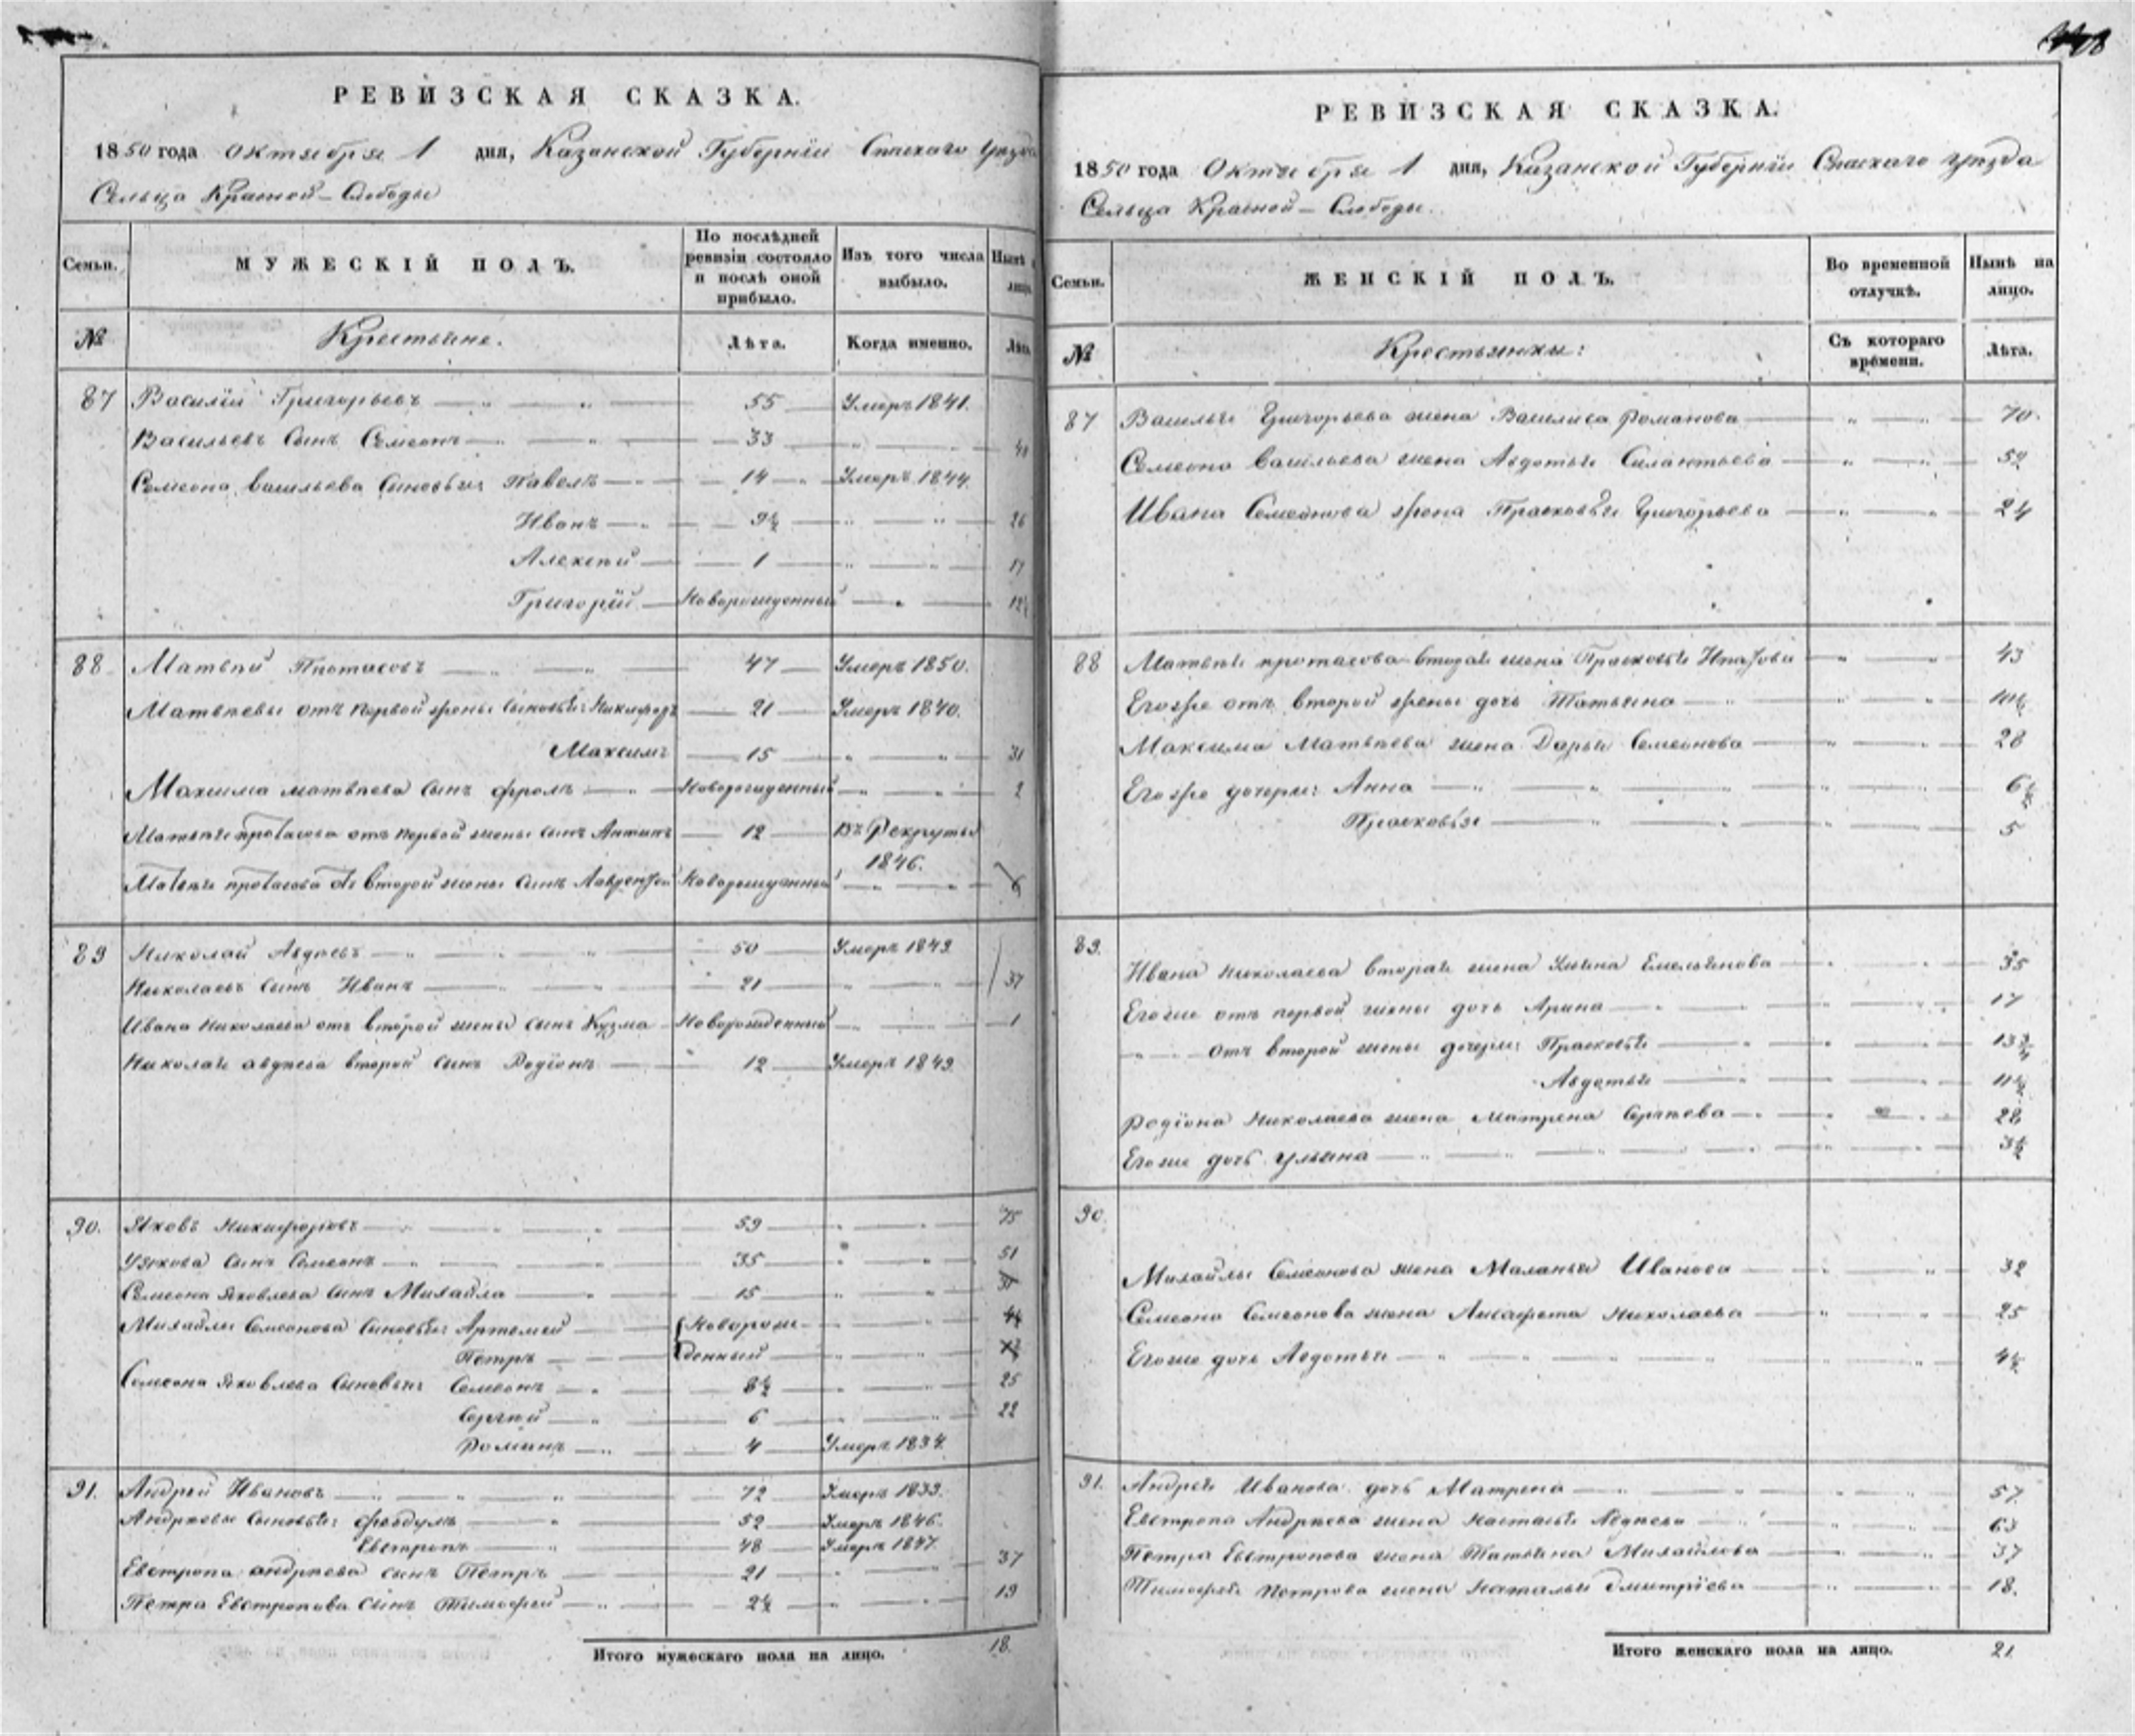 РЕВИЗСКАЯ СКАЗКА.
1850 года Октября 1 дня, Казанской Губернiи Спаскаго уѣзда
Сельца Красной-Слободы
Семьи.
МУЖЕСКІЙ ПОЛЪ.
По послѣдней ревизіи состояло и послѣ оной прибыло.
Изъ того числа выбыло.
Нынѣ
лицо.
№
Крестьяне.
Лѣта.
Когда именно.
Лѣта
87 Василiй Григорьевъ 55 Умеръ 1841.
Васильевъ сынъ Семеонъ 33
Семеона Васильева сыновья: Павелъ 14 Умеръ 1844.
Иванъ 9½ 26
Алексѣй 1 17
Григорiй Новорожденный 12
88 Матвѣй Протасовъ 47 Умеръ 1850.
Матвѣевы отъ первой жены сыновья: Никифоръ 21 Умеръ 1840.
Максимъ 15 31
Максима Матвѣева сынъ Фролъ Новорожденный 2
Матвѣя Протасова отъ первой жены сынъ Антипъ 12 Въ Рекруты
1846.
Матвѣя Протасова отъ второй жены сынъ Лаврентiй Новорожденный 6
89 Николай Авдѣевъ 50 Умеръ 1849
Николаевъ сынъ Иванъ 21 37
Ивана Николаева отъ второй жены сынъ Кузма Новорожденный 1
Николая Авдѣева второй сынъ Родiонъ 12 Умеръ 1849.
90. Яковъ Никифоровъ 59 75
Якова сынъ Семеонъ 35 51
Семеона Яковлева сынъ Михайла 15 31
Михайлы Семеонова сыновья: Артемей Новорож-
Петръ денный
Семеона Яковлева сыновья: Семеонъ 8½ 25
Сергѣй 6 22
Романъ 4 Умеръ 1834.
91. Андрей Ивановъ 72 Умеръ 1839.
Андреевы сыновья: 52 Умеръ 1846.
Евстропъ 48 Умеръ 1847.
Евстропа Андрѣева сынъ Петръ 21 37
Петра Евстропова сынъ Тимофей 2½ 19
Итого мужескаго пола на лицо. 18.
РЕВИЗСКАЯ СКАЗКА.
1850 года Октября 1 дня, Казанской Губернiи Спаскаго уѣзда
Сельца Красной-Слободы.
Семьи.
ЖЕНСКІЙ ПОЛЪ.
Во временной отлучкѣ.
Нынѣ на лицо.
№
Крестьянки:
Съ котораго времени.
Лѣта.
87 Василья Григорьева жена Василиса Романова 70.
Семеона Васильева жена Авдотья Силантьева 52
Ивана Семеонова жена Прасковья Григорьева 24
88 Матвѣя Протасова вторая жена Прасковья 43
Егоже отъ второй жены дочь Татьяна
Максима Матвѣева жена Дарья Семеонова 28
Егоже дочери: Анна 6½
Прасковья 5
89. Ивана Николаева вторая жена Емельянова 35
Егоже отъ первой жены дочь Арина 17
отъ второй жены дочери: Прасковья 13¾
Авдотья 11½
Родiона Николаева жена Матрена Сергѣева 28
Егоже дочь Ульяна 3½
90. Михайлы Семеонова жена Маланья Иванова 32
Семеона Семеонова жена Николаева 25
Егоже дочь Авдотья 4½
91. Андрея Иванова дочь Матрена 57.
Евстропа Андрѣева жена Настасья Авдѣева 63
Петра Евстропова жена Татьяна Михайлова 37
Тимофея Петрова жена Наталья Дмитрiева 18.
Итого женскаго пола на лицо. 21